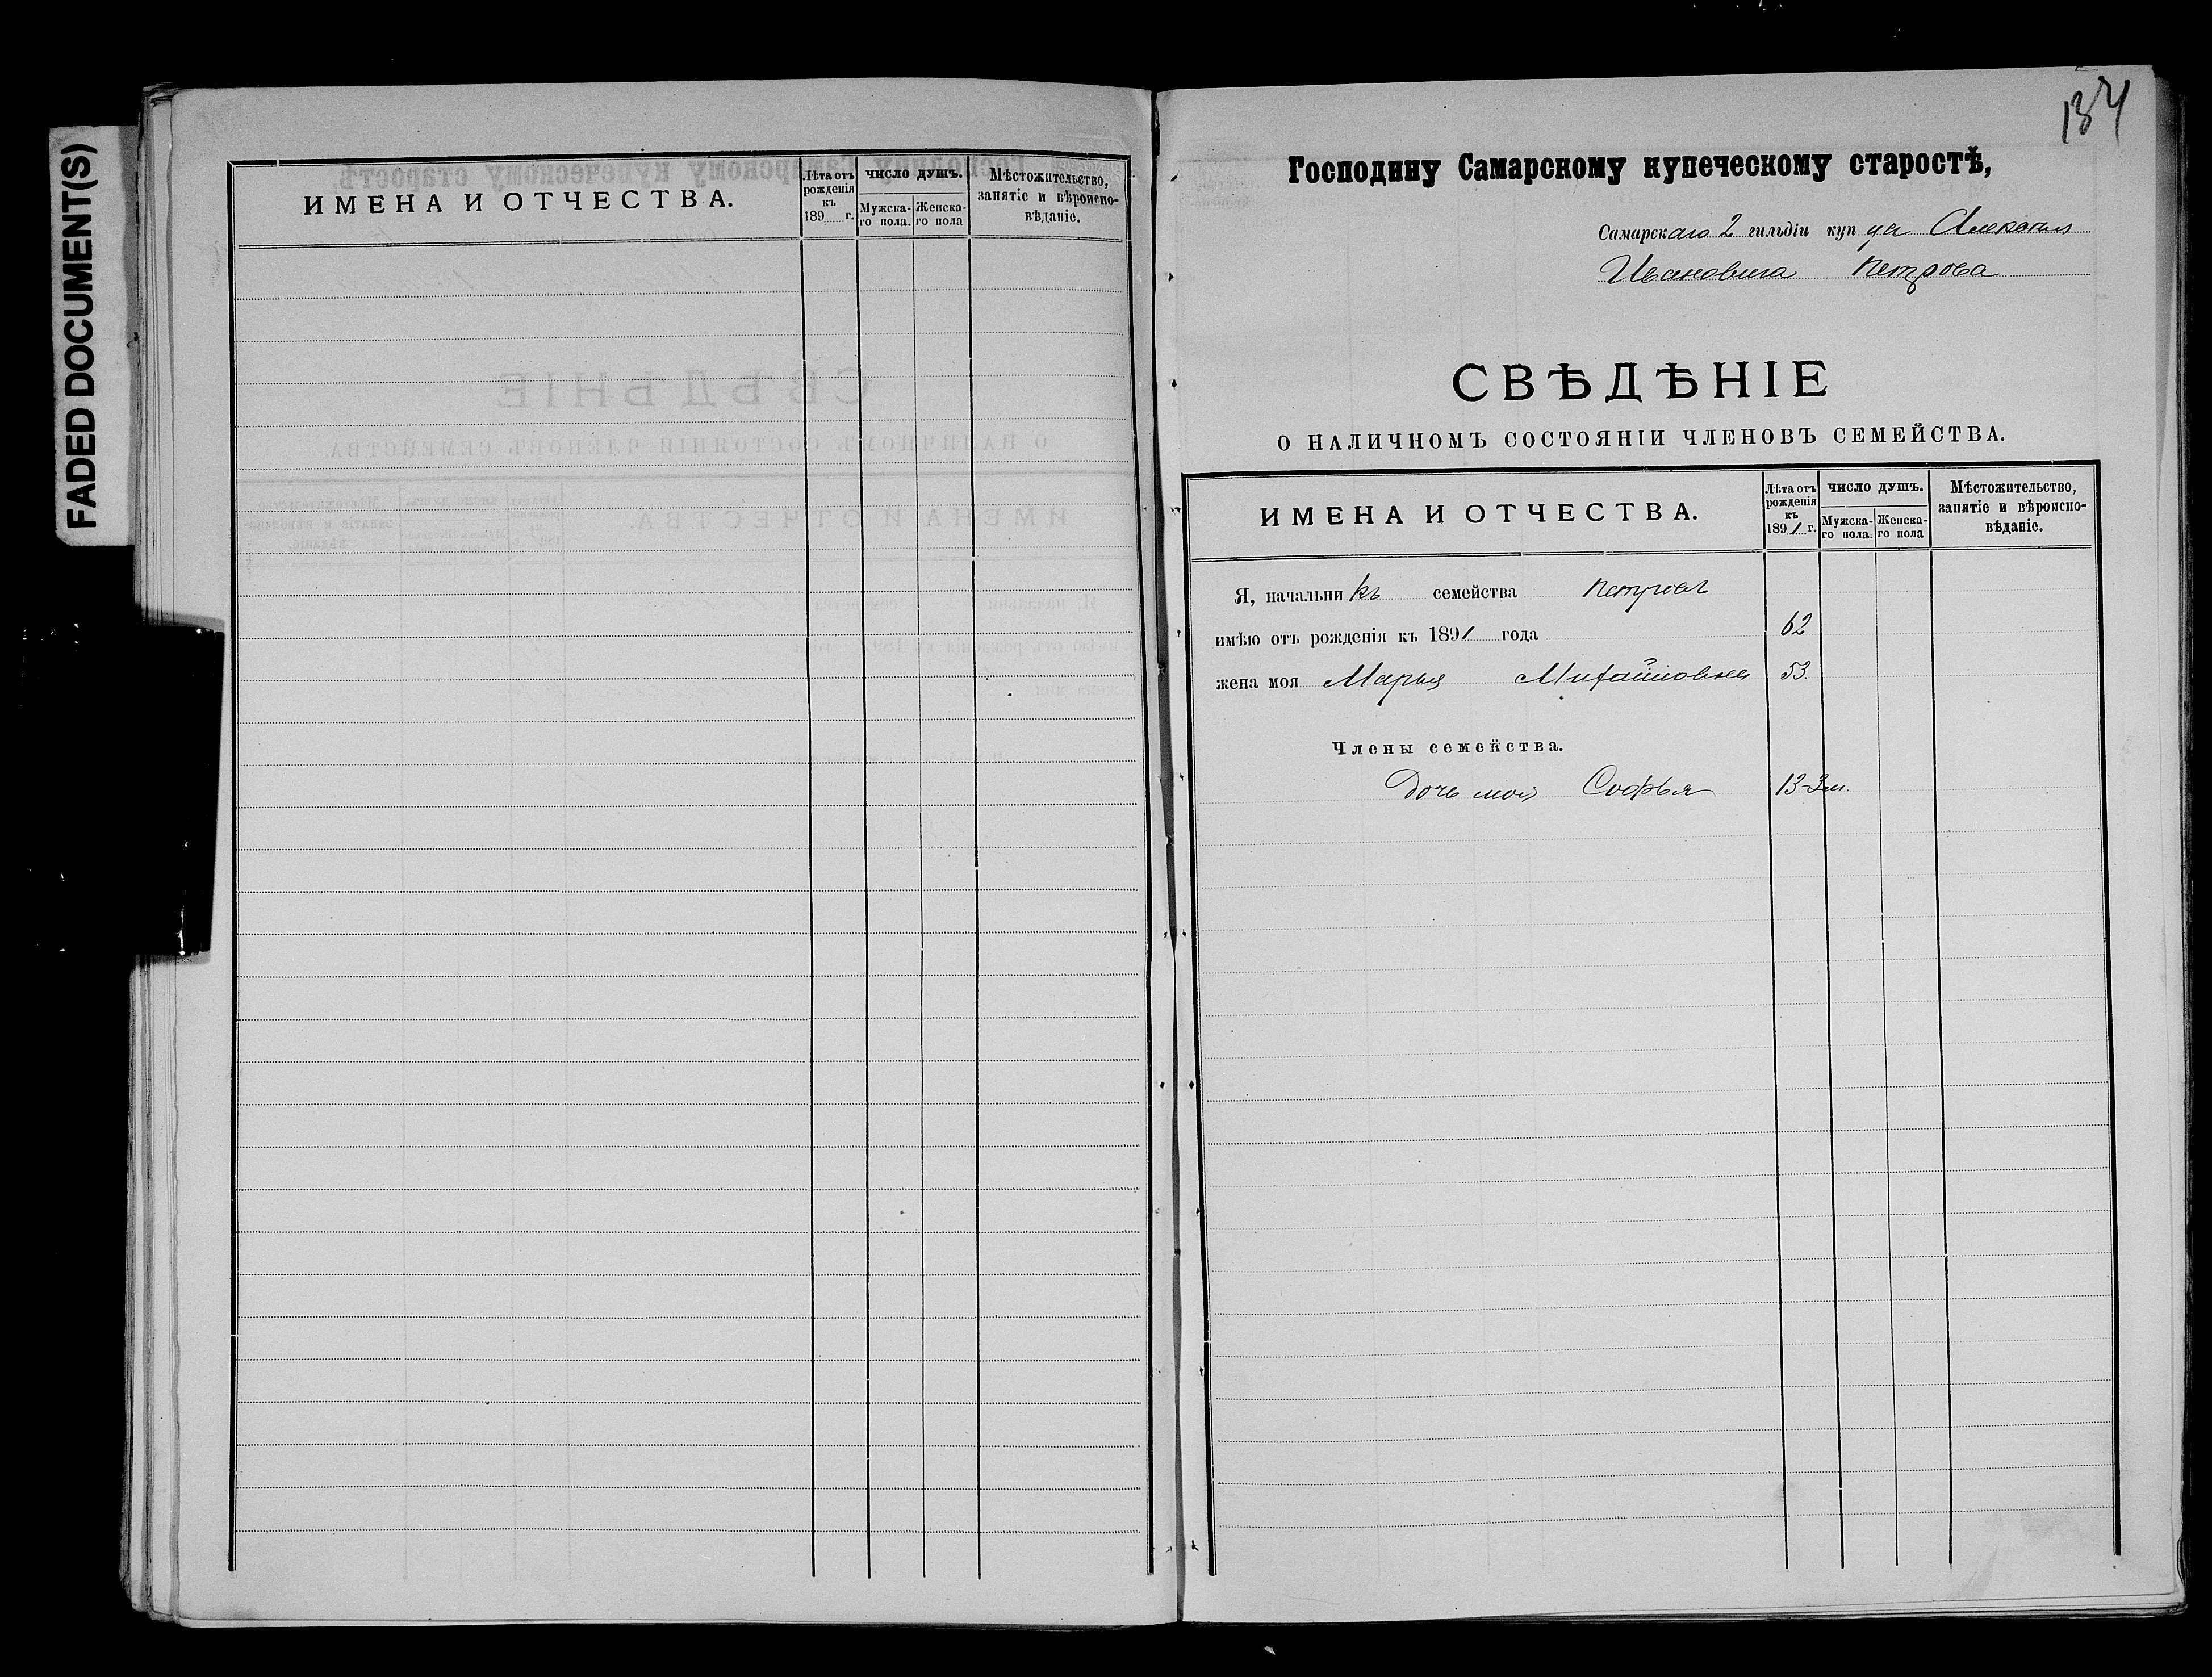 FADED DOCUMENT(S)
ИМЕНА И ОТЧЕСТВА.
Лѣта отъ рожденія къ 189 г.
ЧИСЛО ДУШЪ.
Мужска-го пола.
Женска-го пола
Мѣстожительство, занятіе и вѣроиспо-вѣданіе.
134
Господину Самарскому купеческому старостѣ,
Самарскаго 2 гильдіи купца
Ивановича Петрова
СВѢДѢНІЕ
О НАЛИЧНОМЪ СОСТОЯНІИ ЧЛЕНОВЪ СЕМЕЙСТВА.
ИМЕНА И ОТЧЕСТВА.
Лѣта отъ рожденія къ 1891 г.
ЧИСЛО ДУШЪ.
Мужска-го пола.
Женска-го пола
Мѣстожительство, занятіе и вѣроиспо-вѣданіе.
Я, начальникъ семейства Петровъ
имѣю отъ рожденія къ 1891 года 62
жена моя Марья Михайловна 53.
Члены семейства.
Дочь моя Софья 13-3м.